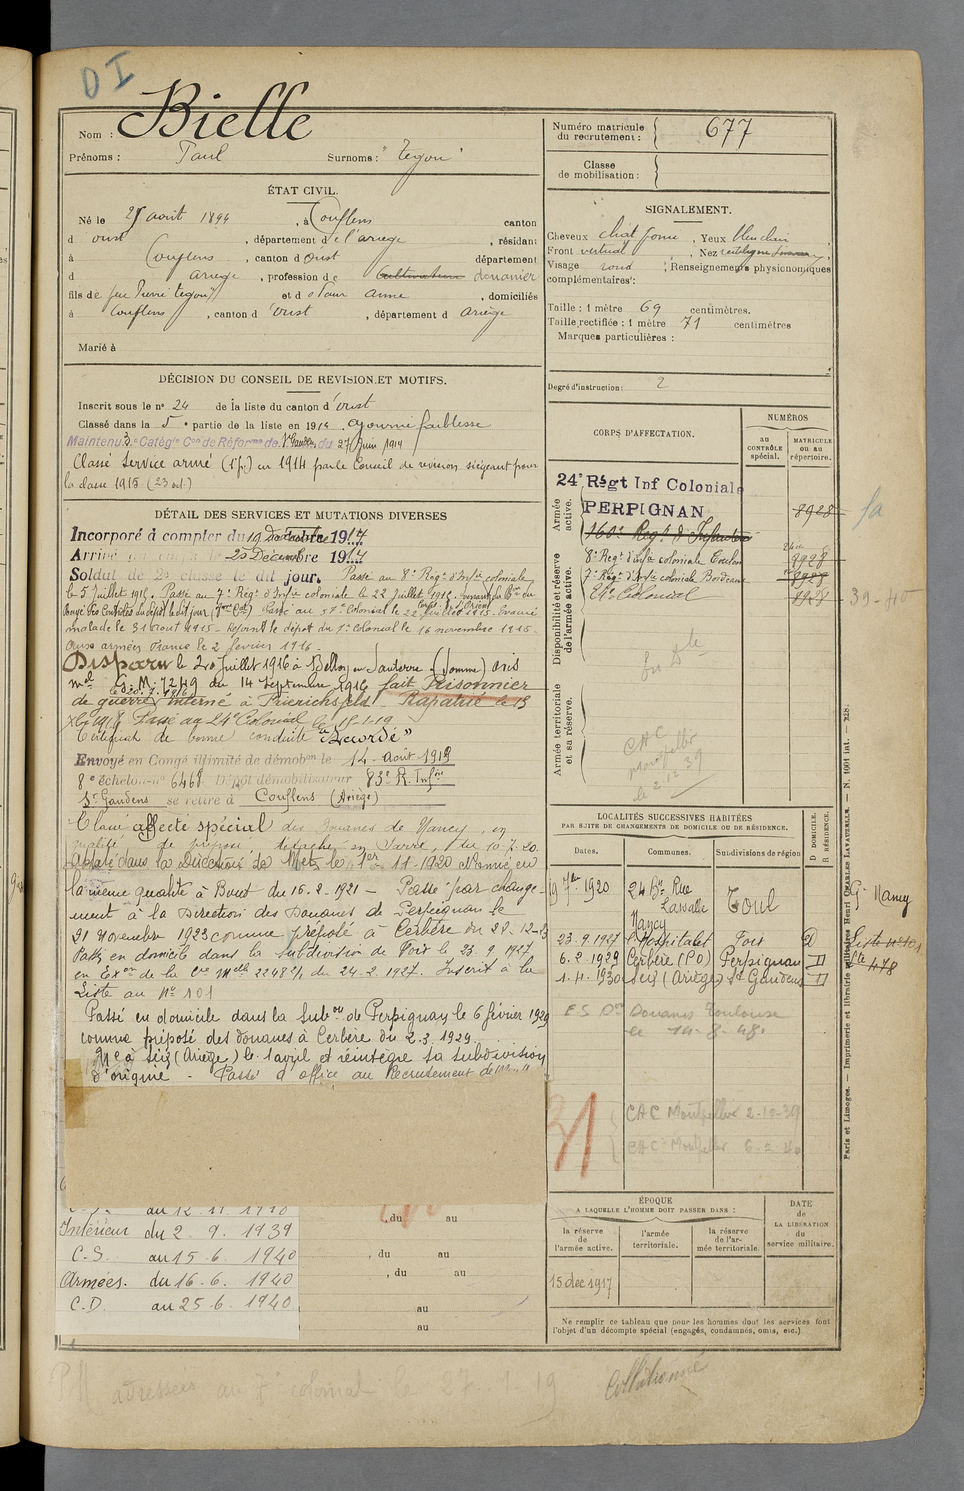 D I
Nom : Bielle
Prénoms : Paul Surnoms : "Tegou"
Numéro matricule du recrutement : 677
Classe de mobilisation :
ÉTAT CIVIL.
Né le 25 août 1894, à Couflens canton
d oust, département de l'ariege, résidant
à Couflens, canton d oust département
d ariege, profession de cultivateur douanier
fils de feu Pierre Tegou et de Faur Anne, domiciliés
à Couflens, canton d'oust, département d Ariège
Marié à
SIGNALEMENT.
Cheveux chat foncé, Yeux bleu clair
Front vertical, Nez rectiligne
Visage rond; Renseignements physionomiques
complémentaires :
Taille : 1 mètre 69 centimètres.
Taille rectifiée : 1 mètre 71 centimètres
Marques particulières :
Degré d'instruction : 2
DÉCISION DU CONSEIL DE REVISION ET MOTIFS.
Inscrit sous le n° 24 de la liste du canton d'oust
Classé dans la 5e partie de la liste en 1914 ajourné faiblesse
Maintenu 3e Catégie Con de Réforme de St Gaudens du 27 Juin 1914
Classé Service armé (1e p.) en 1914 par le Conseil de revision siégeant pour
la classe 1915 (23 oct.)
DÉTAIL DES SERVICES ET MUTATIONS DIVERSES
Incorporé à compter du 19 Décembre 1914
Arrivé au corps le 20 Décembre 1914
Soldat de 2e classe le dit jour. Passé au 8e Regt d'Infie coloniale
le 5 Juillet 1915. Passé au 7e Regt d'Infie coloniale le 22 Juillet 1915.
malade le 31 aout 1915 - Rejoint le dépot du 7e Colonial le 16 novembre 1915.
Aux armées France le 2 fevrier 1916.
Disparu le 20 Juillet 1916 à Belloy en Santerre (Somme) avis
mel G.M. 7249 du 14 Septembre 1916 fait Prisonnier
de guerre le 20.7.1916 interné à Frierichsfeld - Rapatrié le 15
Xbre 1918 Passé au 24e Colonial le 15-1-19
Certificat de bonne conduite "Accordé"
Envoyé en Congé illimité de démobon le 14 Août 1919
8e échelon n° 6468 Dépôt démobilisateur 83e R. Infrie
St Gaudens se retire à Couflens (Ariège)
Classé affecté spécial des Douanes de Nancy, en
qualité de préposé, détaché en Sarre, du 10-7-20.
Appelé dans la Direction de Metz le 1er 11-1920 Nommé en
la même qualité à Boust du 16-2-1921 - Passé par change-
ment à la Direction des Douanes de Perpignan le
21 Novembre 1923 comme préposé à Cerbère du 28-12-23
Passé en domicile dans la subdivision de Foix le 23.9.1927
en Exon de la Cre Mlle 2248 1/1 du 24-2-1927. Inscrit à la
Liste au No 101
Passé en domicile dans la Subon de Perpignan le 6 février 1929
comme préposé des douanes à Cerbère du 2.3.1929
à Seix (Ariège) le 1 avril et réintègre sa subdivision
d'origine - Passé d'office au Recrutement de
au 12 11 1920
Intérieur du 2.9.1939
C.S. au 15.6.1940
Armées. du 16.6.1940
C.D. au 25.6.1940
, du au
, du au
, du au
au
au
CORPS D'AFFECTATION.
NUMÉROS
au CONTRÔLE spécial.
MATRICULE ou au répertoire.
Armée active.
24e Régt Inf Coloniale
PERPIGNAN
8928
fa
160e Regt d'Infanterie
Disponibilité et réserve de l'armée active.
8e Regt d'Infie coloniale Toulon 8928
7e Regt d'Infie coloniale Bordeaux 8928
24e Colonial 8928
39-40
Armée territoriale et sa réserve.
CAC
Montpellier
le 2.12.39
LOCALITÉS SUCCESSIVES HABITÉES
PAR SUITE DE CHANGEMENTS DE DOMICILE OU DE RÉSIDENCE.
Dates. Communes. Subdivisions de région D DOMICILE. R RÉSIDENCE.
19 7bre 1920 24 Bis Rue Lassalle Nancy Toul
Gt Nancy
23.9.1927 l'Hospitalet Foix D
Liste n° 101
6.2.1929 Cerbère (PO) Perpignan D
Lte 478
1.4.1930 Seix (Ariège) St Gaudens D
E.S. Don Douanes Toulouse
le 14-8-48.
31
CAC Montpellier 2-12-39
CAC Montpellier 6-2-40
ÉPOQUE
A LAQUELLE L'HOMME DOIT PASSER DANS :
la réserve de l'armée active.
l'armée territoriale.
la réserve de l'armée territoriale.
DATE de LA LIBÉRATION du service militaire.
15 dec 1917
Ne remplir ce tableau que pour les hommes dont les services font
l'objet d'un décompte spécial (engagés, condamnés, omis, etc.)
Paris et Limoges. — Imprimerie et librairie militaires Henri CHARLES-LAVAUZELLE. — N. 1001 int. — 228.
adressées au 7e colonial le 27-1-19
Collationné